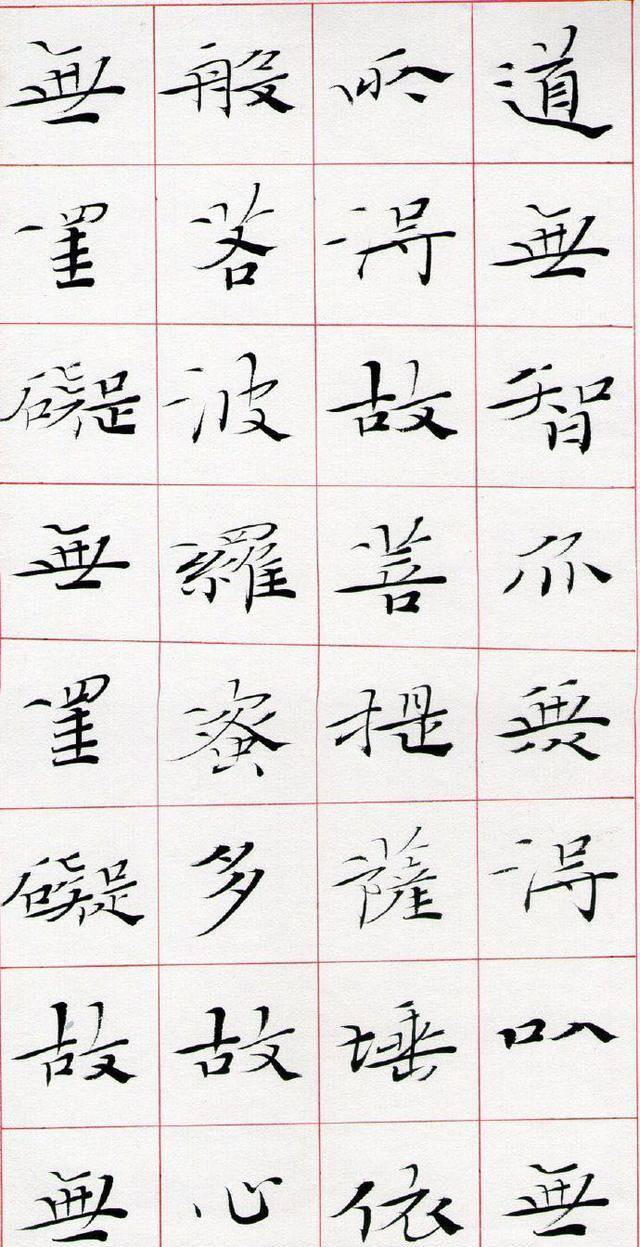 道無智亦無得以無
所得故菩提薩埵依
般若波羅蜜多故心
無罣礙無罣礙故無